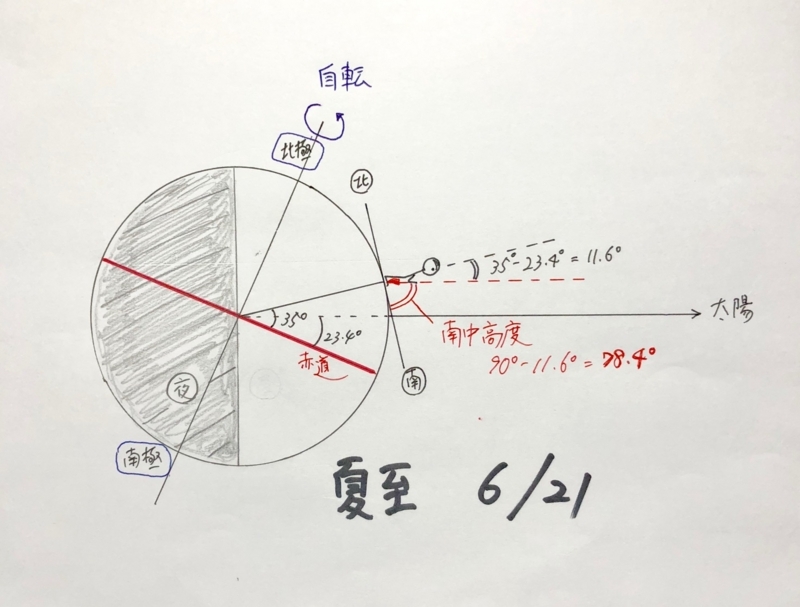 自転
北極
北
35°-23.4° = 11.6°
太陽
35°
23.4°
南中高度
90°-11.6° = 78.4°
赤道
南
夜
南極
夏至 6/21